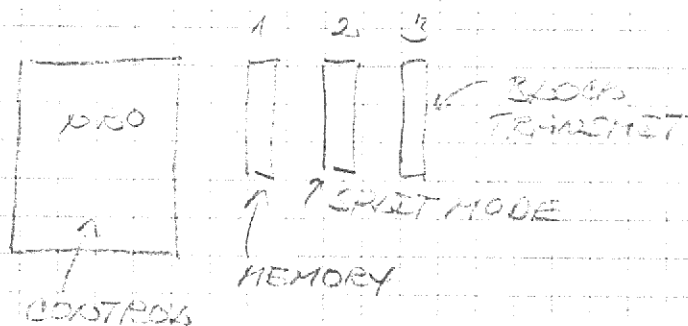 1 2 3
BLOCK
TRANSMIT
SPLIT MODE
MEMORY
CONTROL